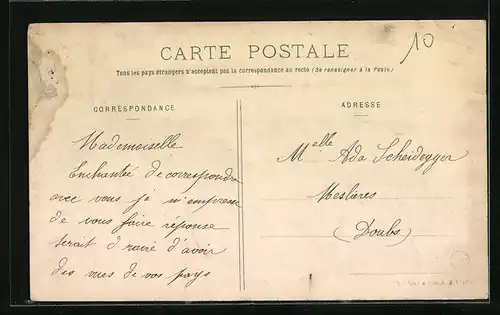 CARTE POSTALE
10
Tous les pays étrangers n'acceptent pas la correspondance au recto (Se renseigner à la Poste)
CORRESPONDANCE
Mademoiselle
Enchantée de correspondre
avec vous je m'empresse
de vous faire réponse
serait d ravie d'avoir
des vues de vos pays
ADRESSE
Melle Ada Scheidegger
Meslières
(Doubs)